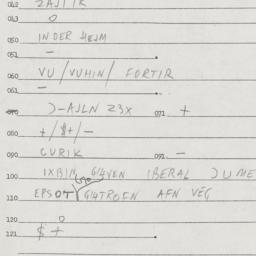 042 ZAJTIK
043 O
050 IN DER HEJM
051 -
060 VU/VUHIN/ FORTIR
061 -
070 )-AJLN 23X 071 +
080 +/$+/-
090 CURIK 091 -
100 IXBIN G14VEN IBERAL
110 EPSOT G14TROFN AFN VEG
120 O
121 $ +